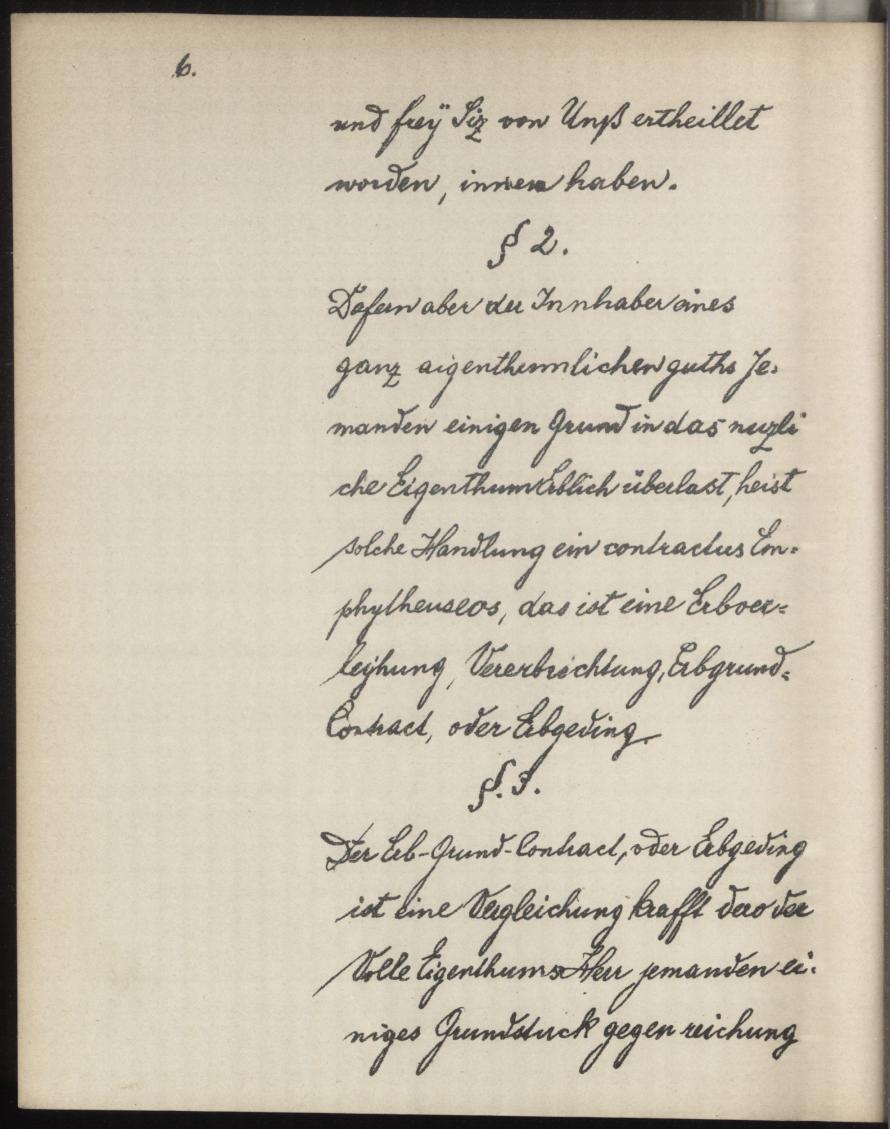 6.
und freÿ Siz von Unß ertheillet
worden, innen haben.
§ 2.
Dafern aber der Innhaber eines
ganz aigenthumlichen guths Je-
manden einigen Grund in das nuzli
che Eigenthum Erblich überlast, heist
solche Handlung ein contractus Em-
phytheuseos, das ist eine Erbver-
leÿhung, Vererbrechtung, Erbgrund-
Contract, oder Erbgeding.
§. 3.
Der Erb-Grund-Contract, oder Erbgeding
ist eine Vergleichung krafft dero der
Volle Eigenthums Herr jemanden ei-
niges Grundstuck gegen reichung